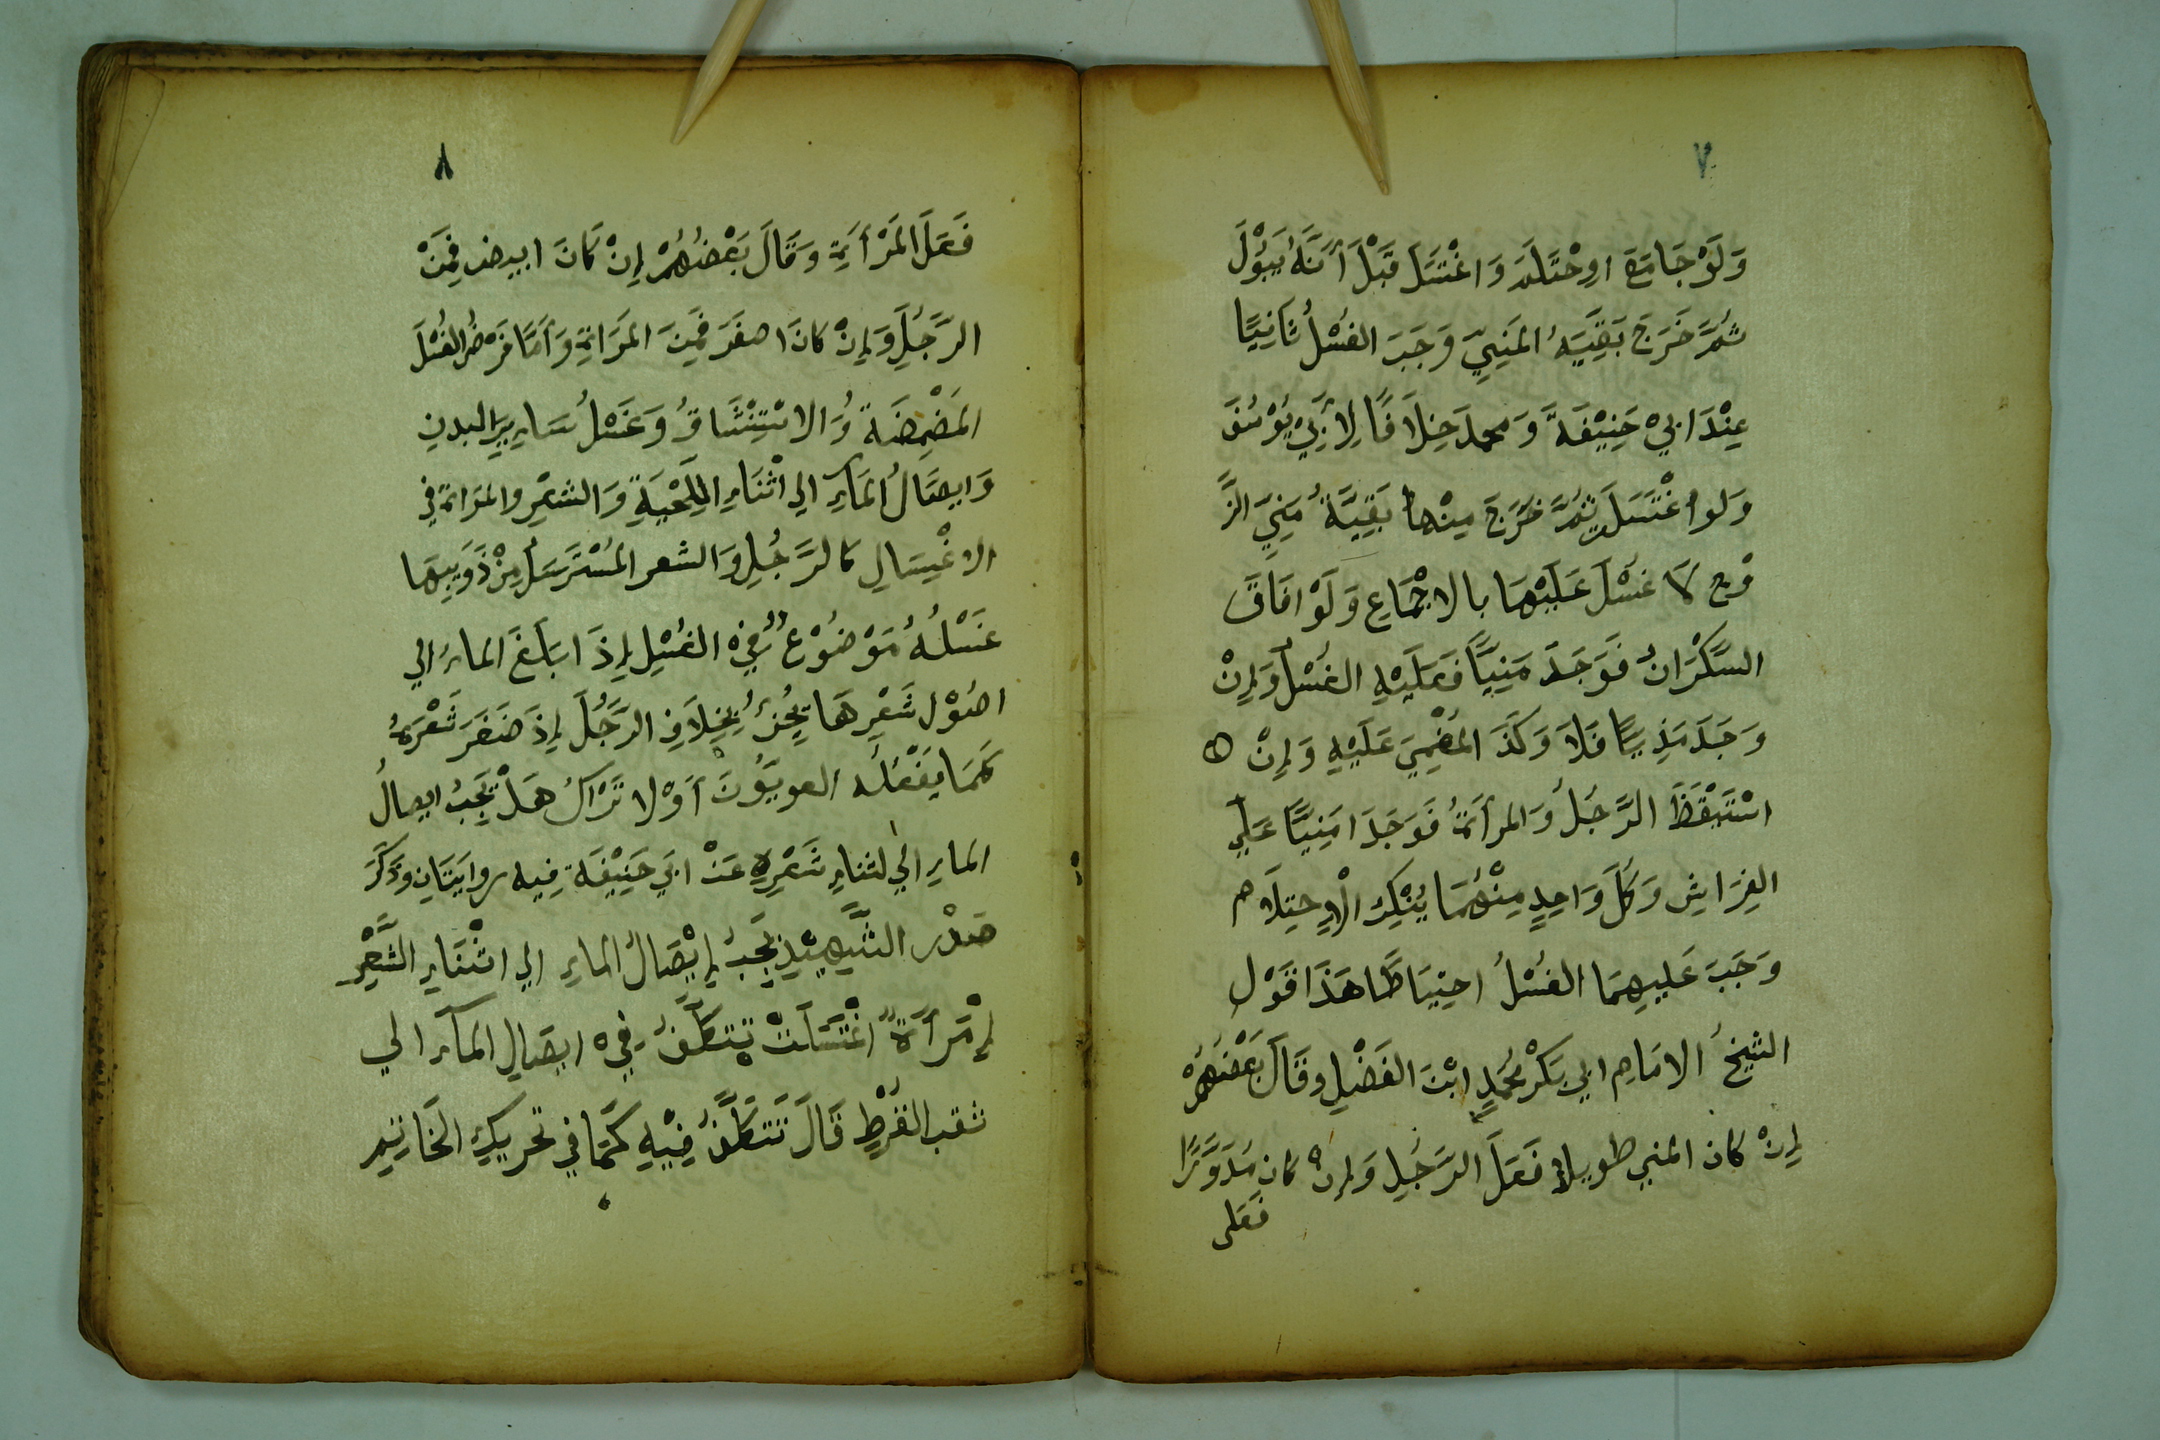 ٧
وَلَوْ جَامَعَ اوِحْتَلَمَ وَاغْتَسَلَ قَبْلَ أَنَّهُ يَبُوْلَ
ثُمَّ خَرَجَ بَقِيَيَهُ المَنِيِّ وَجَبَ الغُسْلُ ثَانِيًا
عِنْدَ ابِيْ حَنِيْفَةَ وَمحمد خِلَافًا لِأَبِيْ يُوْسُفَ
وَلو اغْتَسَلَ ثُمَّ خَرَجَ مِنْها بَقِيَّةُ مَنِيّ الزَّ
وْج لَا غُسْلَ عَلَيْهَا بالاجْمَاعِ وَلَوْ افَاقَ
السَّكْرَانُ فَوَجَدَ مَنِيًّا فَعَلَيْهِ الغُسْلُ وَإِنْ
وَجَدَ مَذِيًّا فَلَا وَكَذَ المُغْمِيَ عَلَيْهِ وَإِنْ ه
اسْتَيْقَظَ الرَّجُلُ وَالمرأَةُ فَوَجَدَا مَنِيًّا عَلَي
الفِرَاشِ وَكُلَّ وَاحِدٍ مِنْهُمَا يُنْكِرُ الْاِحتِلَام
وَجَبَ عَليهِمَا الغُسْلُ احتِيَاطًا هَذَا قَوْلُ
الشيخُ الامَامِ ابي بَكْرْ مُحَمَدٍ ابْنَ الفَضْلِ وقَالَ بَعْضُهُمْ
إِنْ كان المني طويلا فَعَلَ الرَّجُلِ وَإِنْ كان مُدَوَّرًا
فَعَلى
٨
فَعَلَ المَرْأَةِ وَقَالَ بَعْضُهُمْ إِنْ كَانَ ابيض فَمِنْ
الرَّجُلِ وَإِنْ كانَ اصفَرَ فَمِنَ المَرَاةِ وَأَمَّا فَرْضُ الغُسْلَ
المَضْمِضَةُ وَالاسْتِنْشَاقُ وَغَسْلُ سَايِرِ البدنِ
وَايصَالُ المَآءِ الي اثْنَاءِ اللِّحْيَةِ وَالشعْرِ والمَرَاة في
الاغْتِسَالِ كالرَّجُلِ وَالشعر المُسْتَرْسَلُ مِنْ ذَوَيبِهَا
غَسْلُهُ مَوْضُوْعٌ فِيْ الغُسْلِ إِذَا بَلَغَ الماءُ الي
اصُوْل شَعْرِهَا يجُزُ بِخِلَافِ الرَّجُلَ إِذَ ضَفَرَ شَعْرَهُ
كَمَا يَفْعَلُه العويَوُنَ أَوْ لاتَرَاكُ هَلْ يَجبُ ايصالُ
الماءِ الي اثناءِ شَعْرِهِ عَنْ ابي حَنِيْفَةَ فِيه روايَتَانِ وذَكَرَ
صَدْر الشَّهِيْدِ يَجبُ إِيْصَالُ الماءِ الي اثْنَاءِ الشَّعْرِ
إِمْرَأَةٌ اغْتَسَلَتْ تتكَلَّفُ فِي ايصَالِ المآءِ الي
ثقب القُرْطِ قَالَ تَتكَلَّفُ فِيْهِ كَمَا في تحريكِ الخَاتِمِ